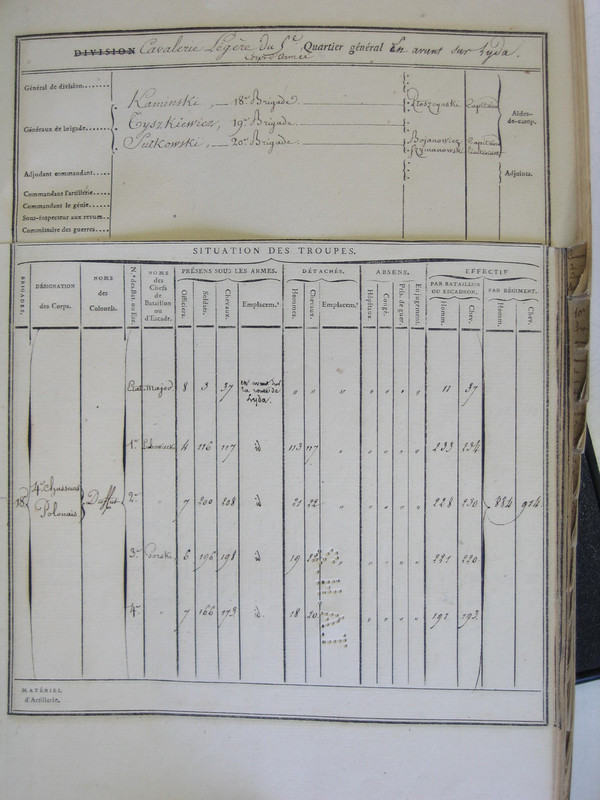 DIVISION Cavalerie Légère du 5e Quartier général En avant sur Lyda.
Corps d'Armée
Général de division......
Kaminski, — 18e Brigade.
Généraux de brigade...... Tyszkiewicz, 19e Brigade.
Sutkowski, — 20e Brigade.
Capitaine
Bojanowicz Capitaine
Szymanowski Lieutenant
Aides-de-camp.
Adjudant commandant.....
Adjoints.
Commandant l'artillerie.....
Commandant le génie.....
Sous-inspecteur aux revues...
Commissaire des guerres....
SITUATION DES TROUPES.
BRIGADES. DÉSIGNATION des Corps. NOMS des Colonels. N.os des Bat. ou Esc. NOMS des Chefs de Bataillon ou d'Escadr. PRÉSENS SOUS LES ARMES. DÉTACHÉS. ABSENS. EFFECTIF
Officiers. Soldats. Chevaux. Emplacem.s Hommes. Chevaux. Emplacem.s Hôpitaux. Congé. Pris. de guer. En jugement. PAR BATAILLON OU ESCADRON. PAR RÉGIMENT.
Homm. Chev. Homm. Chev.
Etat-Major 8 3 37 en avant sur la route de Lyda. " " " " " " " 11 37
1er 4 116 117 id 113 117 " " " " 233 234
18e 4e Chasseurs Polonais 2e " 7 200 208 id 21 22 " " " " " 228 230 884 914
3e 6 196 198 id 19 22 " " " " 221 220
4e " 7 166 173 id. 18 20 " " " " 191 193
MATÉRIEL
d'Artillerie.